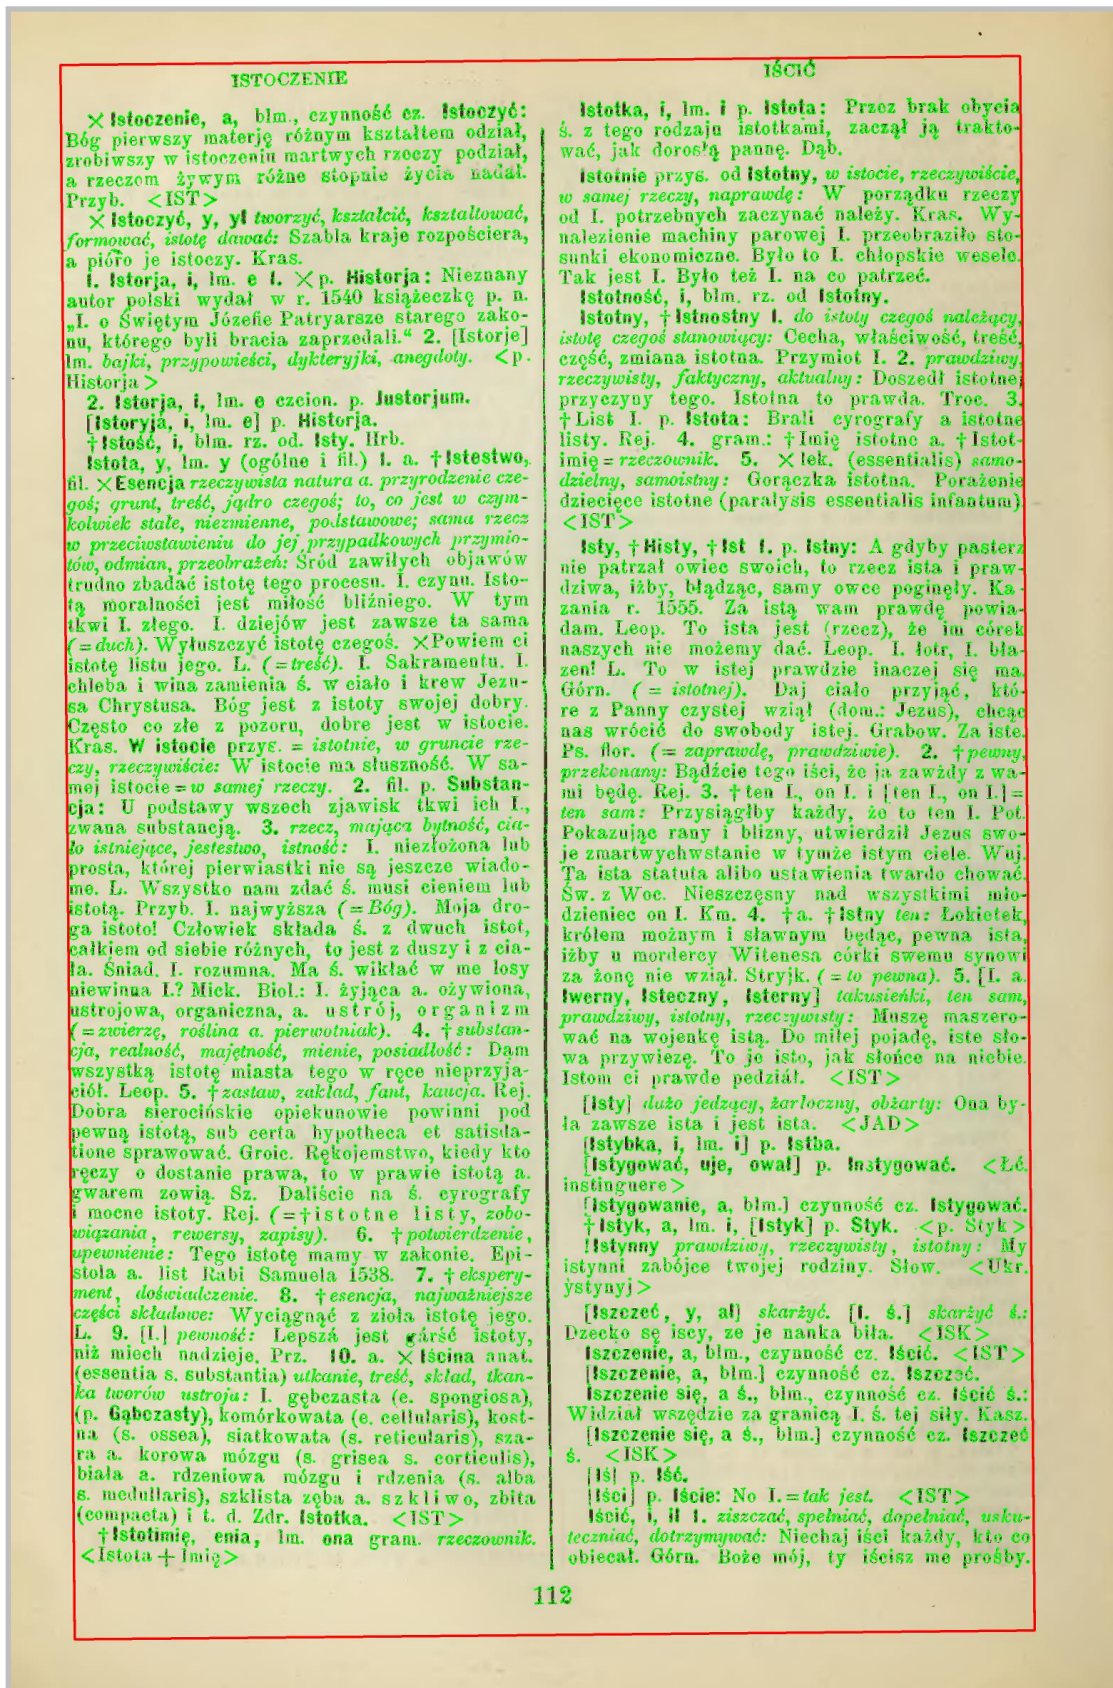 ISTOCZENIE
IŚCIĆ
× Istoczenie, a, blm., czynność cz. Istoczyć:
Bóg pierwszy materję różnym kształtem odział,
zrobiwszy w istoczeniu martwych rzeczy podział,
a rzeczom żywym różne stopnie życia nadał.
Przyb. <IST>
× Istoczyć, y, ył tworzyć, kształcić, kształtować,
formować, istotę dawać: Szabla kraje rozpościera,
a pióro je istoczy. Kras.
1. Istorja, i, lm. e 1. × p. Historja: Nieznany
autor polski wydał w r. 1540 książeczkę p. n.
„I. o Świętym Józefie Patryarsze starego zako-
nu, którego byli bracia zaprzedali.“ 2. [Istorje]
lm. bajki, przypowieści, dykteryjki, anegdoty. <p.
Historja>
2. Istorja, i, lm. e czcion. p. Justorjum.
[Istoryja, i, lm. e] p. Historja.
† Istość, i, blm. rz. od. Isty. Hrb.
Istota, y, lm. y (ogólne i fil.) 1. a. † Istestwo,
fil. × Esencja rzeczywista natura a. przyrodzenie cze-
goś; grunt, treść, jądro czegoś; to, co jest w czym-
kolwiek stałe, niezmienne, podstawowe; sama rzecz
w przeciwstawieniu do jej przypadkowych przymio-
tów, odmian, przeobrażeń: Śród zawiłych objawów
trudno zbadać istotę tego procesu. I. czynu. Isto-
tą moralności jest miłość bliźniego. W tym
tkwi I. złego. I. dziejów jest zawsze ta sama
(= duch). Wyłuszczyć istotę czegoś. × Powiem ci
istotę listu jego. L. (= treść). I. Sakramentu. I.
chleba i wina zamienia ś. w ciało i krew Jezu-
sa Chrystusa. Bóg jest z istoty swojej dobry.
Często co złe z pozoru, dobre jest w istocie.
Kras. W istocie przys. = istotnie, w gruncie rze-
czy, rzeczywiście: W istocie ma słuszność. W sa-
mej istocie = w samej rzeczy. 2. fil. p. Substan-
cja: U podstawy wszech zjawisk tkwi ich I.,
zwana substancją. 3. rzecz, mająca bytność, cia-
ło istniejące, jestestwo, istność: I. niezłożona lub
prosta, której pierwiastki nie są jeszcze wiado-
me. L. Wszystko nam zdać ś. musi cieniem lub
istotą. Przyb. I. najwyższa (= Bóg). Moja dro-
ga istoto! Człowiek składa ś. z dwuch istot,
całkiem od siebie różnych, to jest z duszy i z cia-
ła. Śniad. I. rozumna. Ma ś. wikłać w me losy
niewinna I.? Mick. Biol.: I. żyjąca a. ożywiona,
ustrojowa, organiczna, a. ustrój, organizm
(= zwierzę, roślina a. pierwotniak). 4. † substan-
cja, realność, majętność, mienie, posiadłość: Dam
wszystką istotę miasta tego w ręce nieprzyja-
ciół. Leop. 5. † zastaw, zakład, fant, kaucja. Rej.
Dobra sierocińskie opiekunowie powinni pod
pewną istotą, sub certa hypotheca et satisda-
tione sprawować. Groic. Rękojemstwo, kiedy kto
ręczy o dostanie prawa, to w prawie istotą a.
gwarem zowią. Sz. Daliście na ś. cyrografy
i mocne istoty. Rej. (= † istotne listy, zobo-
wiązania, rewersy, zapisy). 6. † potwierdzenie,
upewnienie: Tego istotę mamy w zakonie. Epi-
stola a. list Rabi Samuela 1538. 7. † ekspery-
ment, doświadczenie. 8. † esencja, najważniejsze
części składowe: Wyciągnąć z zioła istotę jego.
L. 9. [I.] pewność: Lepszá jest gárść istoty,
niż miech nadzieje. Prz. 10. a. × Iścina anat.
(essentia s. substantia) utkanie, treść, skład, tkan-
ka tworów ustroju: I. gębczasta (e. spongiosa),
(p. Gąbczasty), komórkowata (e. cellularis), kost-
na (s. ossea), siatkowata (s. reticularis), sza-
ra a. korowa mózgu (s. grisea s. corticulis),
biała a. rdzeniowa mózgu i rdzenia (s. alba
s. medullaris), szklista zęba a. szkliwo, zbita
(compacta) i t. d. Zdr. Istotka. <IST>
† Istotimię, enia, lm. ona gram. rzeczownik.
<Istota + Imię>
Istotka, i, lm. i p. Istota: Przez brak obycia
ś. z tego rodzaju istotkami, zaczął ją trakto-
wać, jak dorosłą pannę. Dąb.
Istotnie przys. od Istotny, w istocie, rzeczywiście,
w samej rzeczy, naprawdę: W porządku rzeczy
od I. potrzebnych zaczynać należy. Kras. Wy-
nalezienie machiny parowej I. przeobraziło sto-
sunki ekonomiczne. Było to I. chłopskie wesele.
Tak jest I. Było też I. na co patrzeć.
Istotność, i, blm. rz. od Istotny.
Istotny, † Istnostny 1. do istoty czegoś należący,
istotę czegoś stanowiący: Cecha, właściwość, treść,
część, zmiana istotna. Przymiot I. 2. prawdziwy,
rzeczywisty, faktyczny, aktualny: Doszedł istotnej
przyczyny tego. Istotna to prawda. Troc. 3.
† List I. p. Istota: Brali cyrografy a istotne
listy. Rej. 4. gram.: † Imię istotne a. † Istot-
imię = rzeczownik. 5. × lek. (essentialis) samo-
dzielny, samoistny: Gorączka istotna. Porażenie
dziecięce istotne (paralysis essentialis infantum).
<IST>
Isty, † Histy, † Ist 1. p. Istny: A gdyby pasterz
nie patrzał owiec swoich, to rzecz ista i praw-
dziwa, iżby, błądząc, samy owce poginęły. Ka-
zania r. 1555. Za istą wam prawdę powia-
dam. Leop. To ista jest (rzecz), że im córek
naszych nie możemy dać. Leop. I. łotr, I. bła-
zen! L. To w istej prawdzie inaczej się ma.
Górn. (= istotnej). Daj ciało przyjąć, któ-
re z Panny czystej wziął (dom.: Jezus), chcąc
nas wrócić do swobody istej. Grabow. Za iste.
Ps. flor. (= zaprawdę, prawdziwie). 2. † pewny,
przekonany: Bądźcie tego iści, że ja zawżdy z wa-
mi będę. Rej. 3. † ten I., on I. i [ten I., on I.] =
ten sam: Przysiągłby każdy, że to ten I. Pot.
Pokazując rany i blizny, utwierdził Jezus swo-
je zmartwychwstanie w tymże istym ciele. Wuj.
Ta ista statuta alibo ustawienia twardo chować.
Św. z Woc. Nieszczęsny nad wszystkimi mło-
dzieniec on I. Km. 4. † a. † Istny ten: Łokietek,
królem możnym i sławnym będąc, pewna ista,
iżby u mordercy Witenesa córki swemu synowi
za żonę nie wziął. Stryjk. (= to pewna). 5. [I. a.
Iwerny, Isteczny, Isterny] takusieńki, ten sam,
prawdziwy, istotny, rzeczywisty: Muszę maszero-
wać na wojenkę istą. Do miłej pojadę, iste sło-
wa przywiezę. To je isto, jak słońce na niebie.
Istom ci prawde pedział. <IST>
[Isty] dużo jedzący, żarłoczny, obżarty: Ona by-
ła zawsze ista i jest ista. <JAD>
[Istybka, i, lm. i] p. Istba.
[Istygować, uje, ował] p. Instygować. <Łć.
instinguere>
[Istygowanie, a, blm.] czynność cz. Istygować.
† Istyk, a, lm. i, [Istyk] p. Styk. <p. Styk>
!Istynny prawdziwy, rzeczywisty, istotny: My
istynni zabójce twojej rodziny. Słow. <Ukr.
ystynyj>
[Iszczeć, y, ał] skarżyć. [I. ś.] skarżyć ś.:
Dzecko sę iscy, ze je nanka biła. <ISK>
Iszczenie, a, blm., czynność cz. Iścić. <IST>
[Iszczenie, a, blm.] czynność cz. Iszczeć.
Iszczenie się, a ś., blm., czynność cz. Iścić ś.:
Widział wszędzie za granicą I. ś. tej siły. Kasz.
[Iszczenie się, a ś., blm.] czynność cz. Iszczeć
ś. <ISK>
[Iś] p. Iść.
[Iści] p. Iście: No I. = tak jest. <IST>
Iścić, i, ił 1. ziszczać, spełniać, dopełniać, usku-
teczniać, dotrzymywać: Niechaj iści każdy, kto co
obiecał. Górn. Boże mój, ty iścisz me prośby.
112